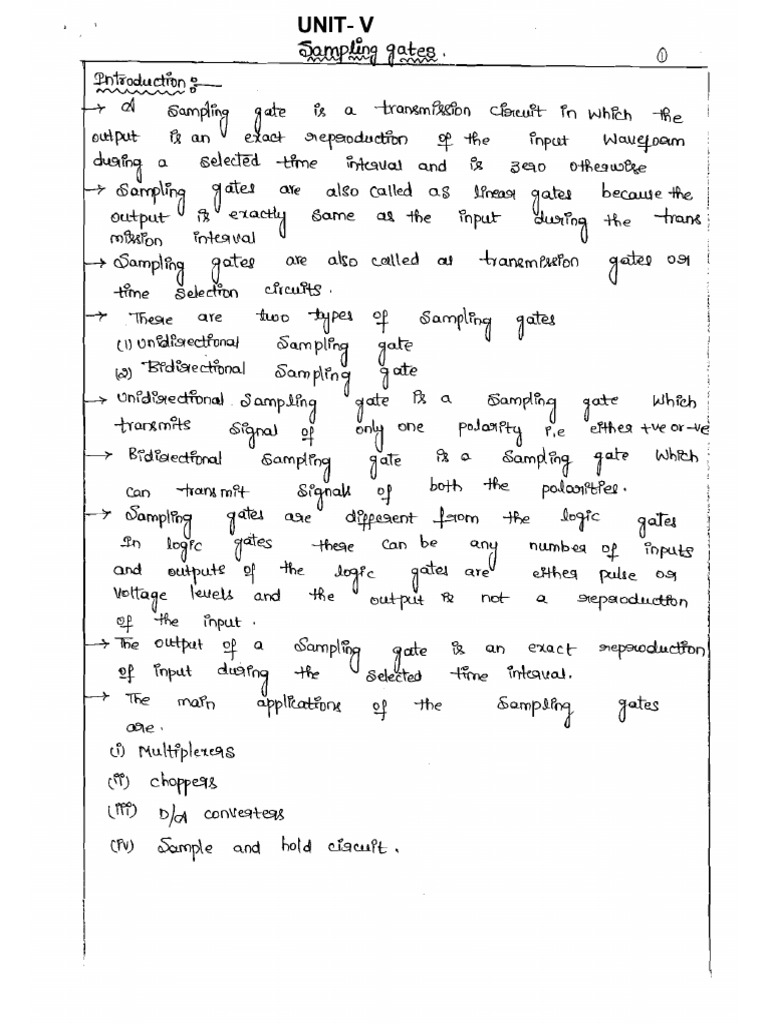 UNIT- V
Sampling gates.
①
Introduction :-
→ A Sampling gate is a transmission circuit in which the
output is an exact reproduction of the input waveform
during a selected time interval and is zero otherwise
→ Sampling gates are also called as linear gates because the
output is exactly same as the input during the trans
mission interval
→ Sampling gates are also called as transmission gates or
time selection circuits.
→ There are two types of Sampling gates
(1) Unidirectional Sampling gate
(2) Bidirectional Sampling gate
→ Unidirectional Sampling gate is a Sampling gate which
transmits signal of only one polarity i,e either +ve or -ve
→ Bidirectional Sampling gate is a Sampling gate which
can transmit signals of both the polarities.
→ Sampling gates are different from the logic gates
In logic gates there can be any number of inputs
and outputs of the logic gates are either pulse or
voltage levels and the output is not a reproduction
of the input.
→ The output of a Sampling gate is an exact reproduction
of input during the selected time interval.
→ The main applications of the Sampling gates
are.
(i) Multiplexers
(ii) choppers
(iii) D/A converters
(iv) Sample and hold circuit.